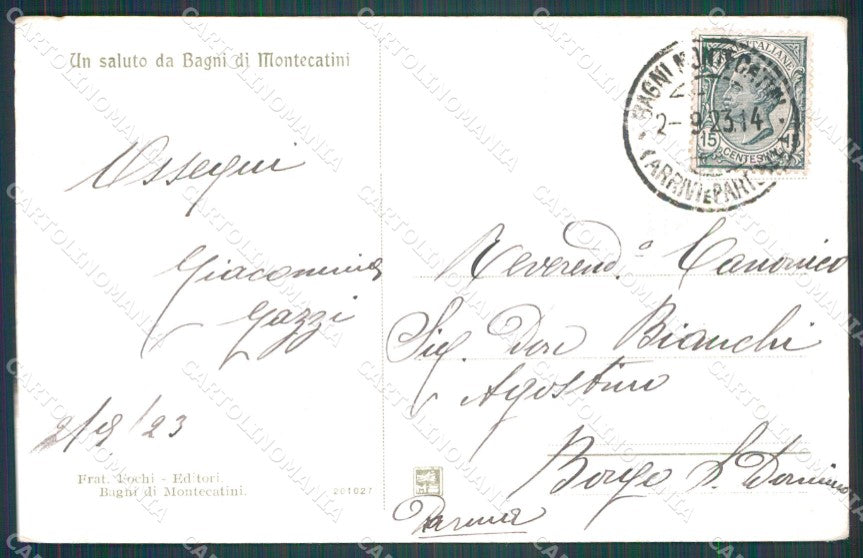 Un saluto da Bagni di Montecatini
Ossequi
Giacomina
Gazzi
2/9/23
Frat. Fochi - Editori.
Bagni di Montecatini.
201027
BAGNI MONTECATINI
2-9.23.14
(ARRIVI E PARTENZE)
ITALIANE
15
CENTESIMI
Reverend.º Canonico
Sig. Don Bianchi
Agostino
Borgo S. Domnino
Parma
CARTOLINOMANIA